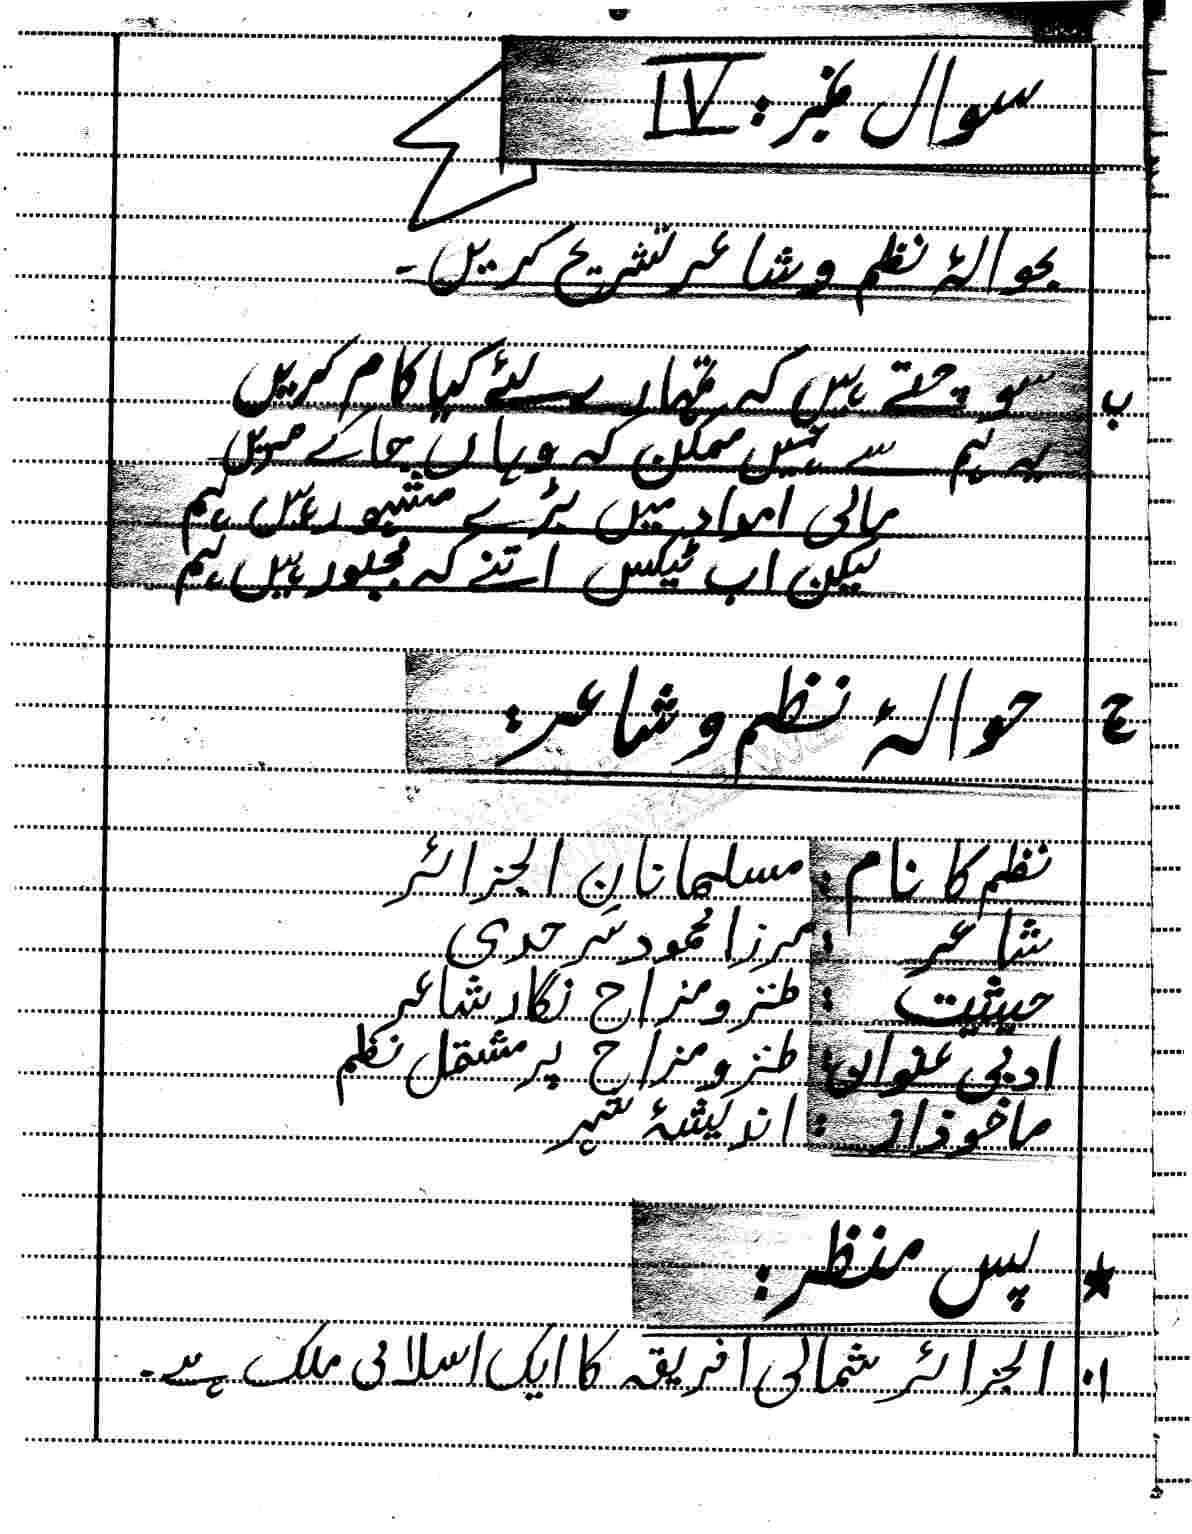 سوال نمبر: IV
بحوالۂ نظم و شاعر تشریح کریں۔
ب سوچتے ہیں کہ تمہارے لئے کیا کام کریں
یہ ہم سے نہیں ممکن کہ وہاں جا کے مریں
مالی امداد میں بڑے مشہور ہیں ہم
لیکن اب ٹیکس اتنے کہ مجبور ہیں ہم
ج حوالۂ نظم و شاعر:
نظم کا نام: مسلمانان الجزائر
شاعر: مرزا محمود سرحدی
حیثیت: طنز و مزاح نگار شاعر
ادبی عنوان: طنز و مزاح پر مشتمل نظم
ماخوذ از: اندیشۂ شہر
★ پس منظر:
۱۰ الجزائر شمالی افریقہ کا ایک اسلامی ملک ہے۔